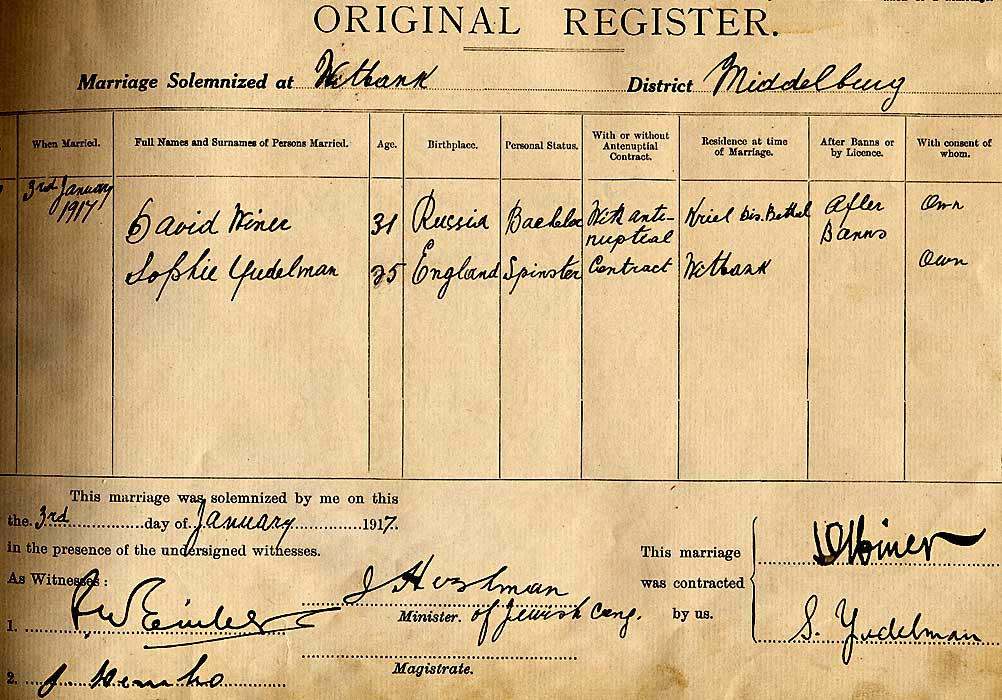 ORIGINAL REGISTER.
Marriage Solemnized at Witbank District Middelburg
When Married. Full Names and Surnames of Persons Married. Age. Birthplace. Personal Status. With or without Antenuptial Contract. Residence at time of Marriage. After Banns or by Licence. With consent of whom.
3rd January 1917 David Winer 31 Russia Bachelor With ante-nuptial Kriel Dis. Bethal After Banns Own
Sophie Yudelman 25 England Spinster Contract Witbank Own
This marriage was solemnized by me on this
the 3rd day of January 1917.
in the presence of the undersigned witnesses.
As Witnesses:
1.
2.
J Hershman
Minister. of Jewish Cong.
Magistrate.
This marriage was contracted by us.
D Winer
S. Yudelman